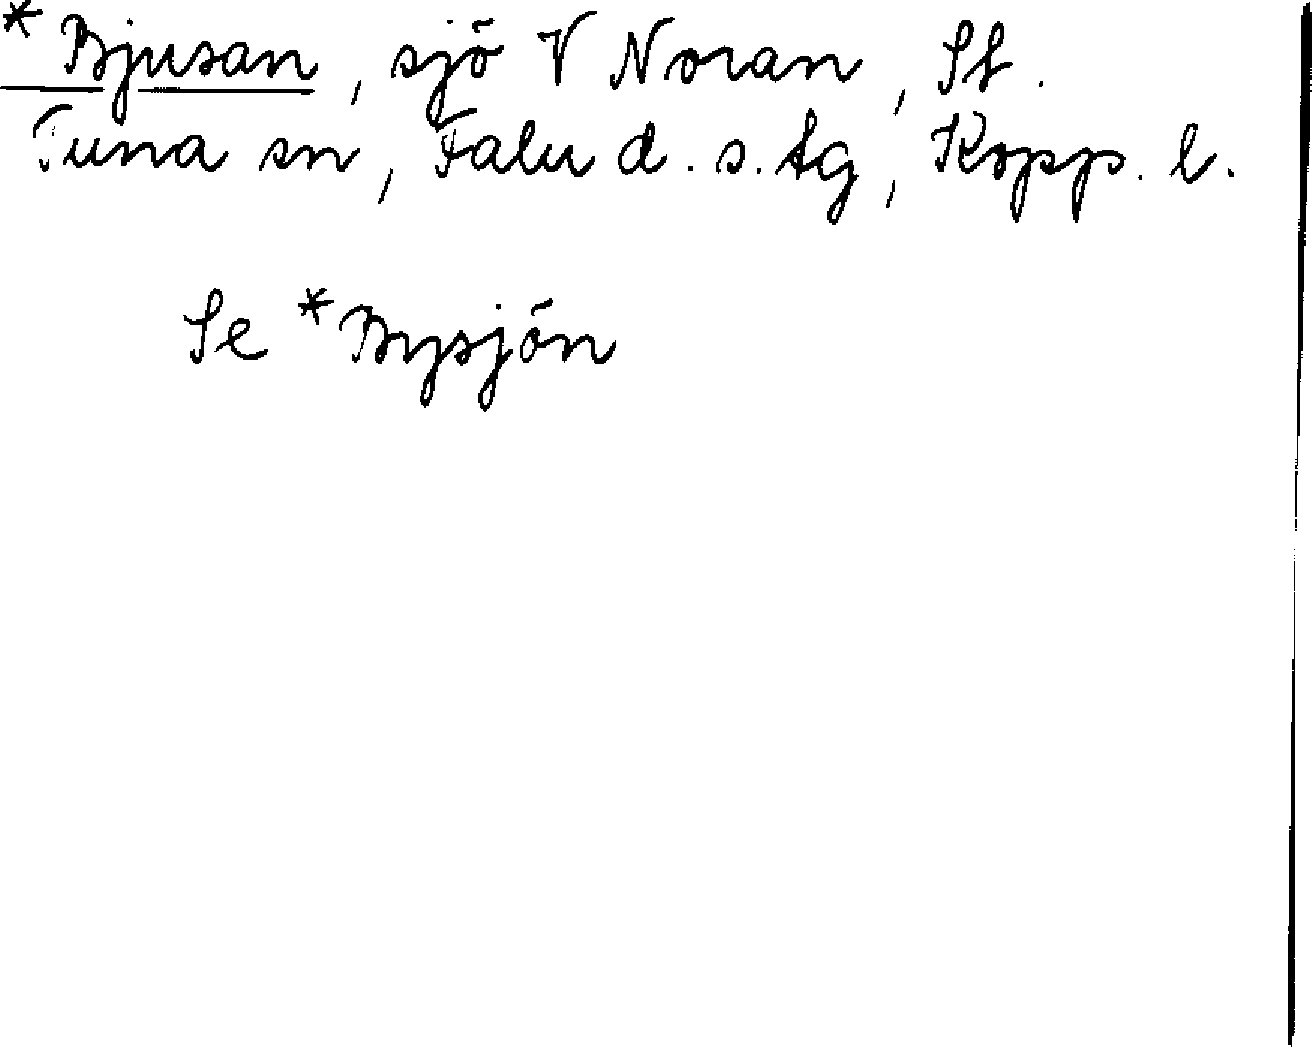 *Bjusan, sjö V Noran, St.
Tuna sn, Falu d. s. tg, Kopp. l.
Se *Bysjön